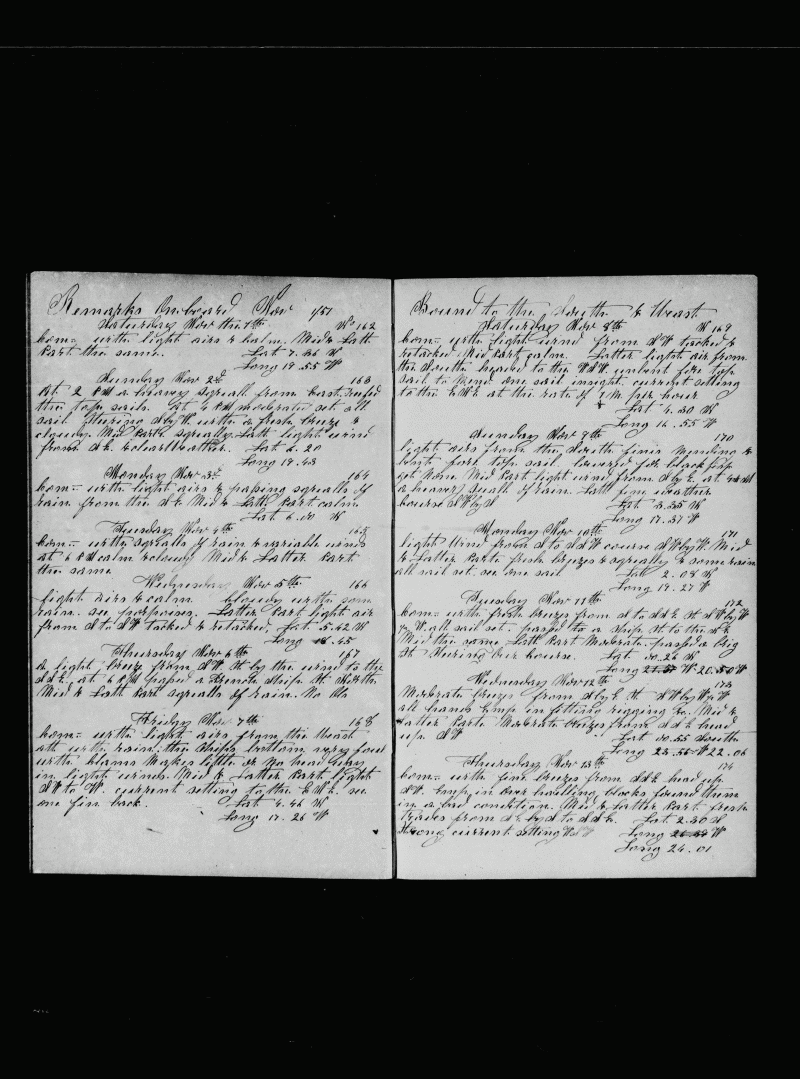 Remarks Onboard Nov /51
Saturday Nov the 1th No 162
Com= with light airs & calm. Mid & Latt
Part the same. Lat 7.26 N
Long 19.55 W
Sunday Nov 2d 163
At 2 P.M a heavy squall from East. reefed
the top sails. at 4 P.M moderate set all
sail Stearing S by W. with a fresh breeze &
cloudy. Mid Part squally. Latt light wind
from S.E. & clear weather. Lat 6.20
Long 19.43
Monday Nov 3d 164
Com= with light airs & passing squalls of
rain from the S.E. Mid & Latt Part calm
Lat 6.10 N
Tuesday Nov 4th 165
Com= with squalls of rain & variable winds
at 6 P.M calm & cloudy Mid & Latter Part
the same
Wednesday Nov 5th 166
Light airs & calm cloudy with some
rain. see porpoises. Latter Part light air
from S to SW tacked & retacked. Lat 5.42 N
Long 18.45
Thursday Nov 6th 167
A light breeze from SW. St by the wind to the
SSE. at 6 P.M passed a French Ship St North
Mid & Latt Part squalls of rain. No Ob
Friday Nov 7th 168
Com= with light airs from the West
att with rain. the Ships bottom very foul
with clams Makes little or No head way
in light winds. Mid & Latter Part light
SW to W. current setting to the E.N.E. see
one fin back. Lat 4.46 N
Long 17.26 W
Bound to the South & West
Saturday Nov 8th No 169
Com= with light wind from SW tacked &
retacked Mid Part calm. Latter light air from
the South headed to the WSW. unbent fore top
sail to Mend one sail insight. current setting
to the E.N.E at the rate of 1 M per hour
Lat 4.30 N
Long 16.55 W
Sunday Nov 9th 170
light airs from the South finis Mending &
bent fore top sail.
got None. Mid Part light wind from S by E. at 4 AM
a heavy squall of rain. Latt fine weather
Course SW by S Lat 3.35 N
Long 17.37 W
Monday Nov 10th 171
light Wind from S to SSW course SW by W. Mid
& Latter Parts fresh breezes & squally & some rain
all sail set. see one sail Lat 2.08 N
Long 19.27 W
Tuesday Nov 11th 172
Com= with fresh breeze from S to SSE St SW by W
& W. all sail set. passed to a Ship St to the SE
Mid the same. Latt Part Moderate. passed a brig
St Stearing Our Course. Lat 00.26 N
Long W 20.50 W
Wednesday Nov 12th 173
Moderate breezes from S by E St SW by W & W
all hands Emp in fitting rigging &c. Mid &
Latter Parts Moderate breezes from SSE head
up SW Lat 00.55 South
Long W 22.06
Thursday Nov 13th 174
Com= with fine breezes from SSE head up
SW. Emp in Over hauling blocks found them
in a bad condition. Mid & Latter Part fresh
trades from SE by S to SSE. Lat 2.30 S
Strong current setting Long W
Long 24.01